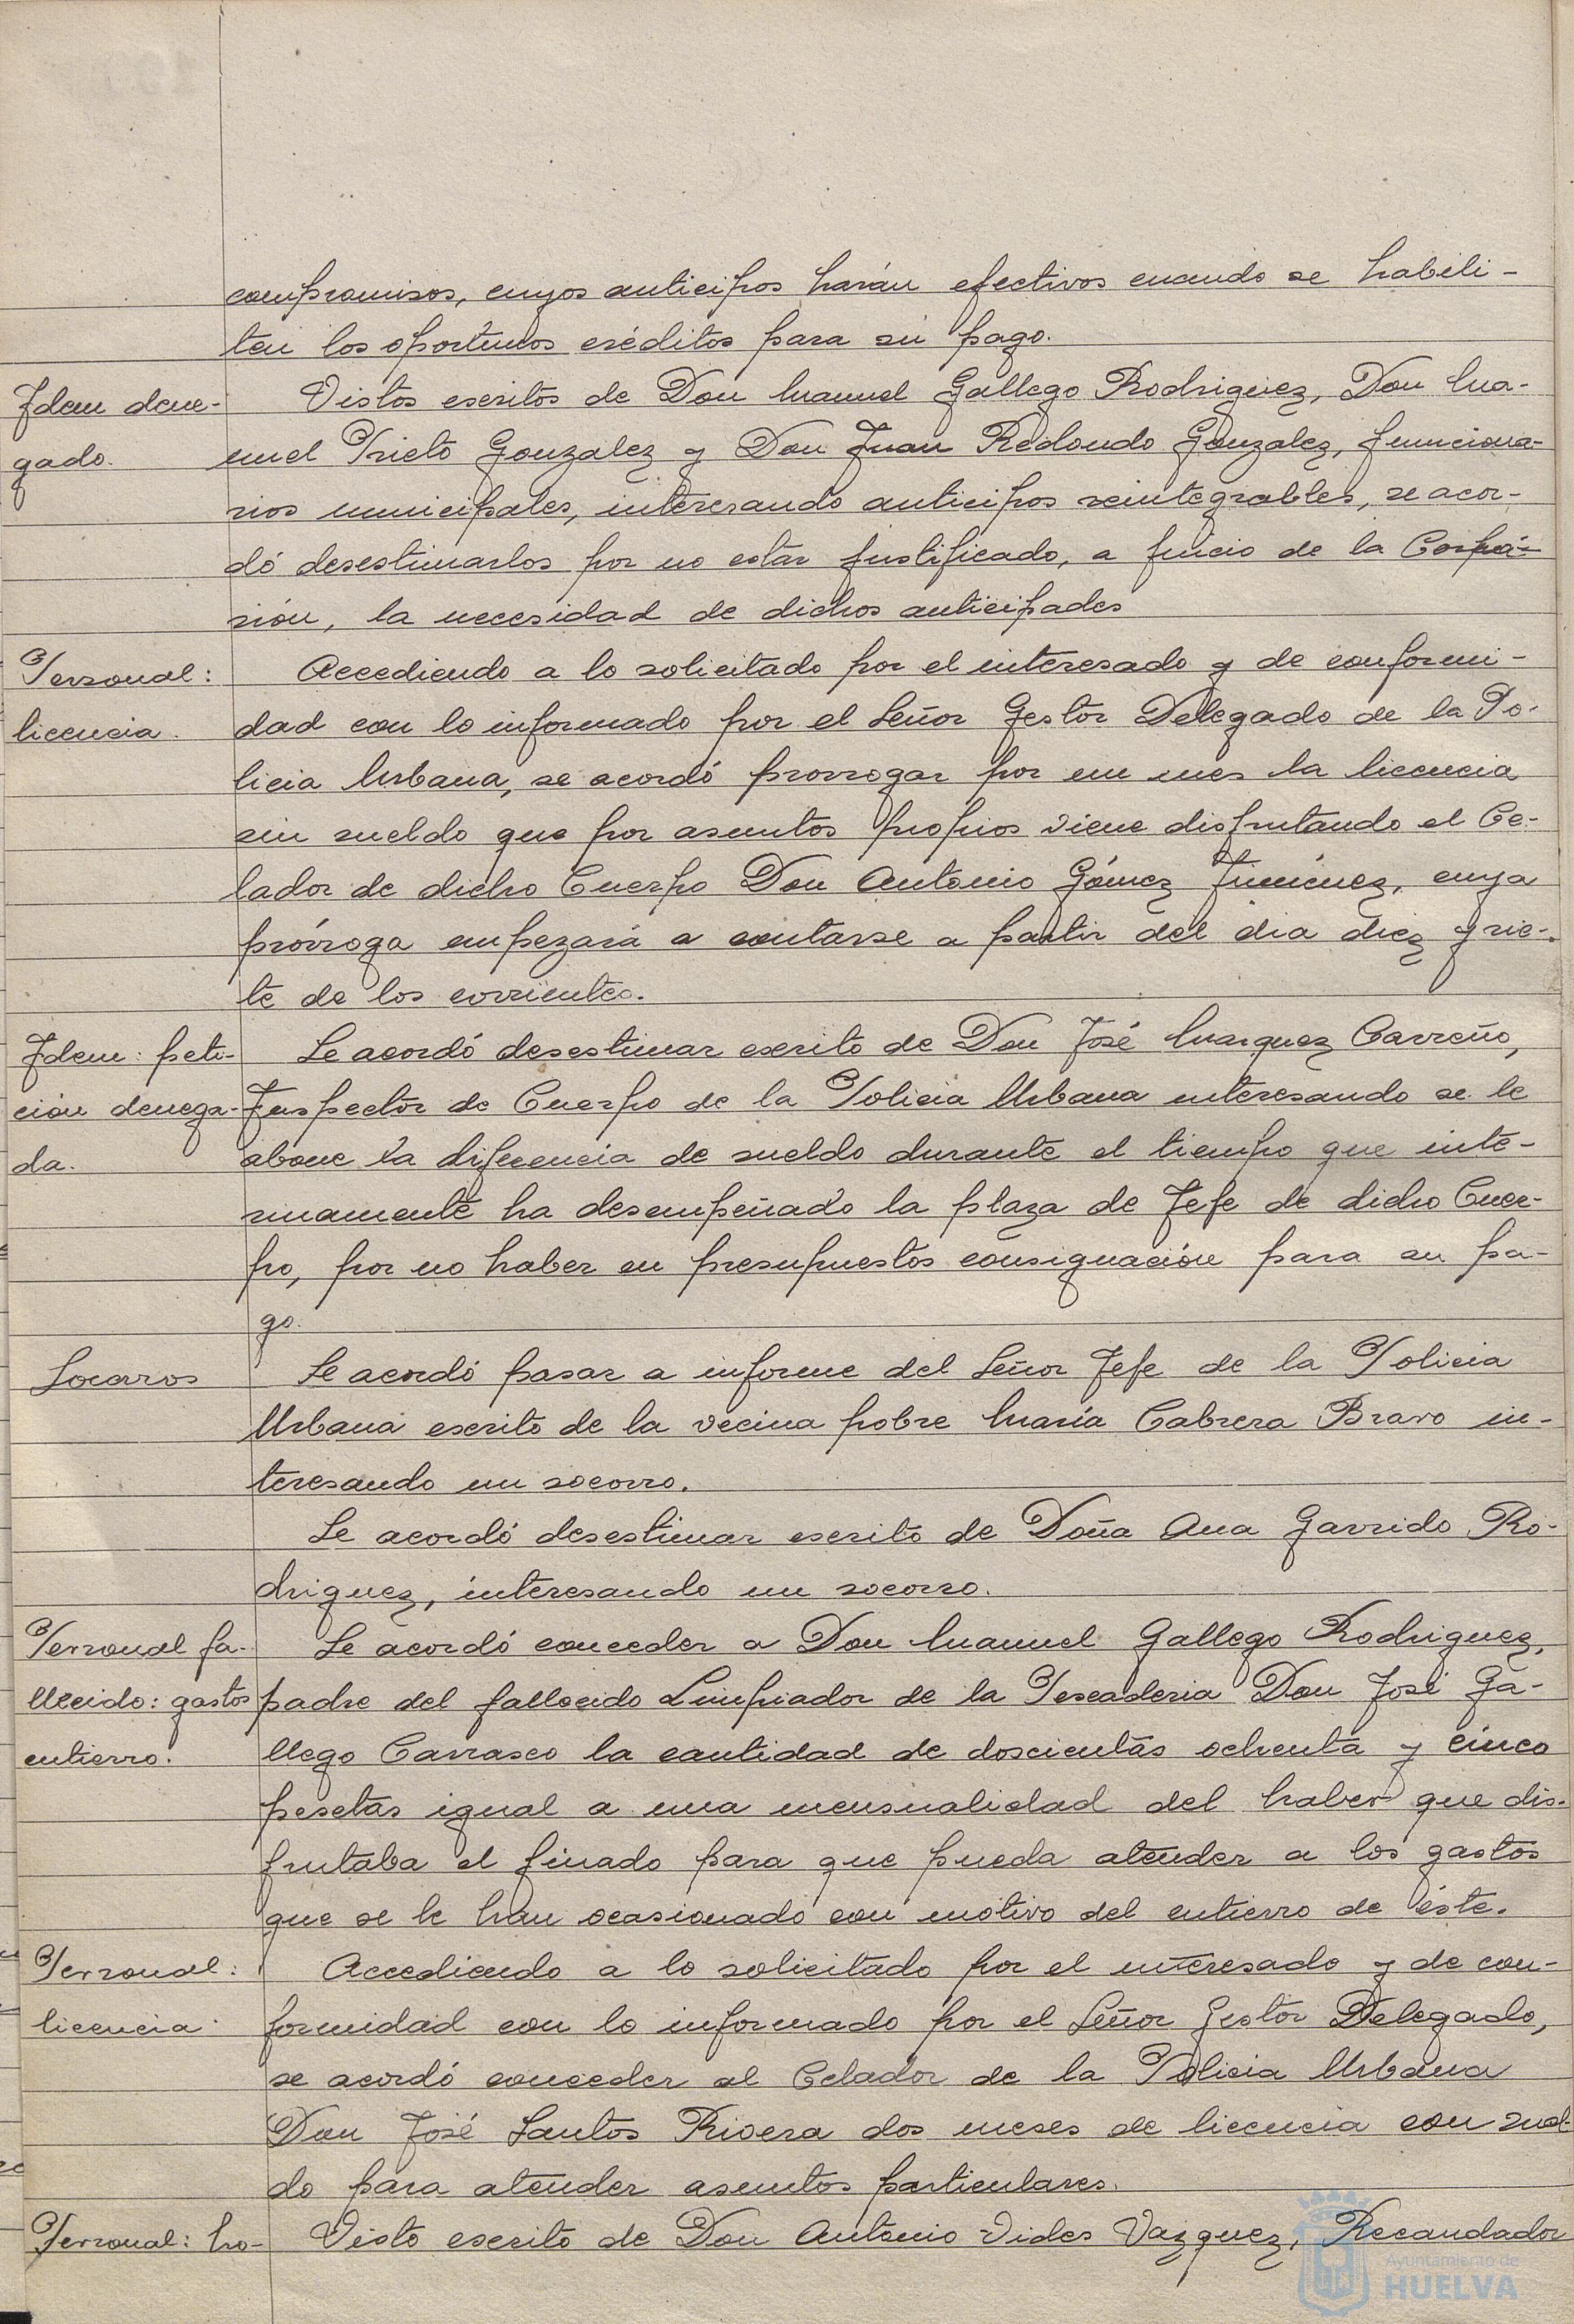 compromisos, cuyos anticipos harán efectivos cuando se habili-
ten los oportunos créditos para su pago.
Idem dene-
gado.
Vistos escritos de Don Manuel Gallego Rodriguez, Don Ma-
nuel Prieto Gonzalez y Don Juan Redondo Gonzalez, funciona-
rios municipales, interesando anticipos reintegrables, se acor-
dó desestimarlos por no estar justificado, a juicio de la Corpo-
sión, la necesidad de dichos anticipades
Personal:
licencia.
Accediendo a lo solicitado por el interesado y de conformi-
dad con lo informado por el Señor Gestor Delegado de la Po-
licia Urbana, se acordó prorrogar por un mes la licencia
sin sueldo que por asuntos propios viene disfrutando el Ce-
lador de dicho Cuerpo Don Antonio Gómez Jiménez, cuya
prórroga empezará a contarse a partir del dia diez y sie-
te de los corrientes.
Idem: peti-
ción denega-
da.
Se acordó desestimar escrito de Don José Marquez Carreño,
Inspector de Cuerpo de la Policia Urbana interesando se le
abone la diferencia de sueldo durante el tiempo que inte-
rinamente ha desempeñado la plaza de Jefe de dicho Cuer-
po, por no haber en presupuestos consignación para su pa-
go.
Socorros
Se acordó pasar a informe del Señor Jefe de la Policia
Urbana escrito de la vecina pobre María Cabrera Bravo in-
teresando un socorro.
Se acordó desestimar escrito de Doña Ana Garrido Ro-
driguez, interesando un socorro.
Personal fa-
llecido: gastos
entierro.
Se acordó conceder a Don Manuel Gallego Rodriguez,
padre del fallecido Limpiador de la Pescaderia Don José Ga-
llego Carrasco la cantidad de doscientas ochenta y cinco
pesetas igual a una mensualidad del haber que dis-
frutaba el finado para que pueda atender a los gastos
que se le han ocasionado con motivo del entierro de éste.
Personal:
licencia.
Accediendo a lo solicitado por el interesado y de con-
formidad con lo informado por el Señor Gestor Delegado,
se acordó conceder al Celador de la Policia Urbana
Don José Santos Rivera dos meses de licencia con suel-
do para atender asuntos particulares.
Personal: ho-
Visto escrito de Don Antonio Vides Vazquez, Recaudador
Ayuntamiento de
HUELVA